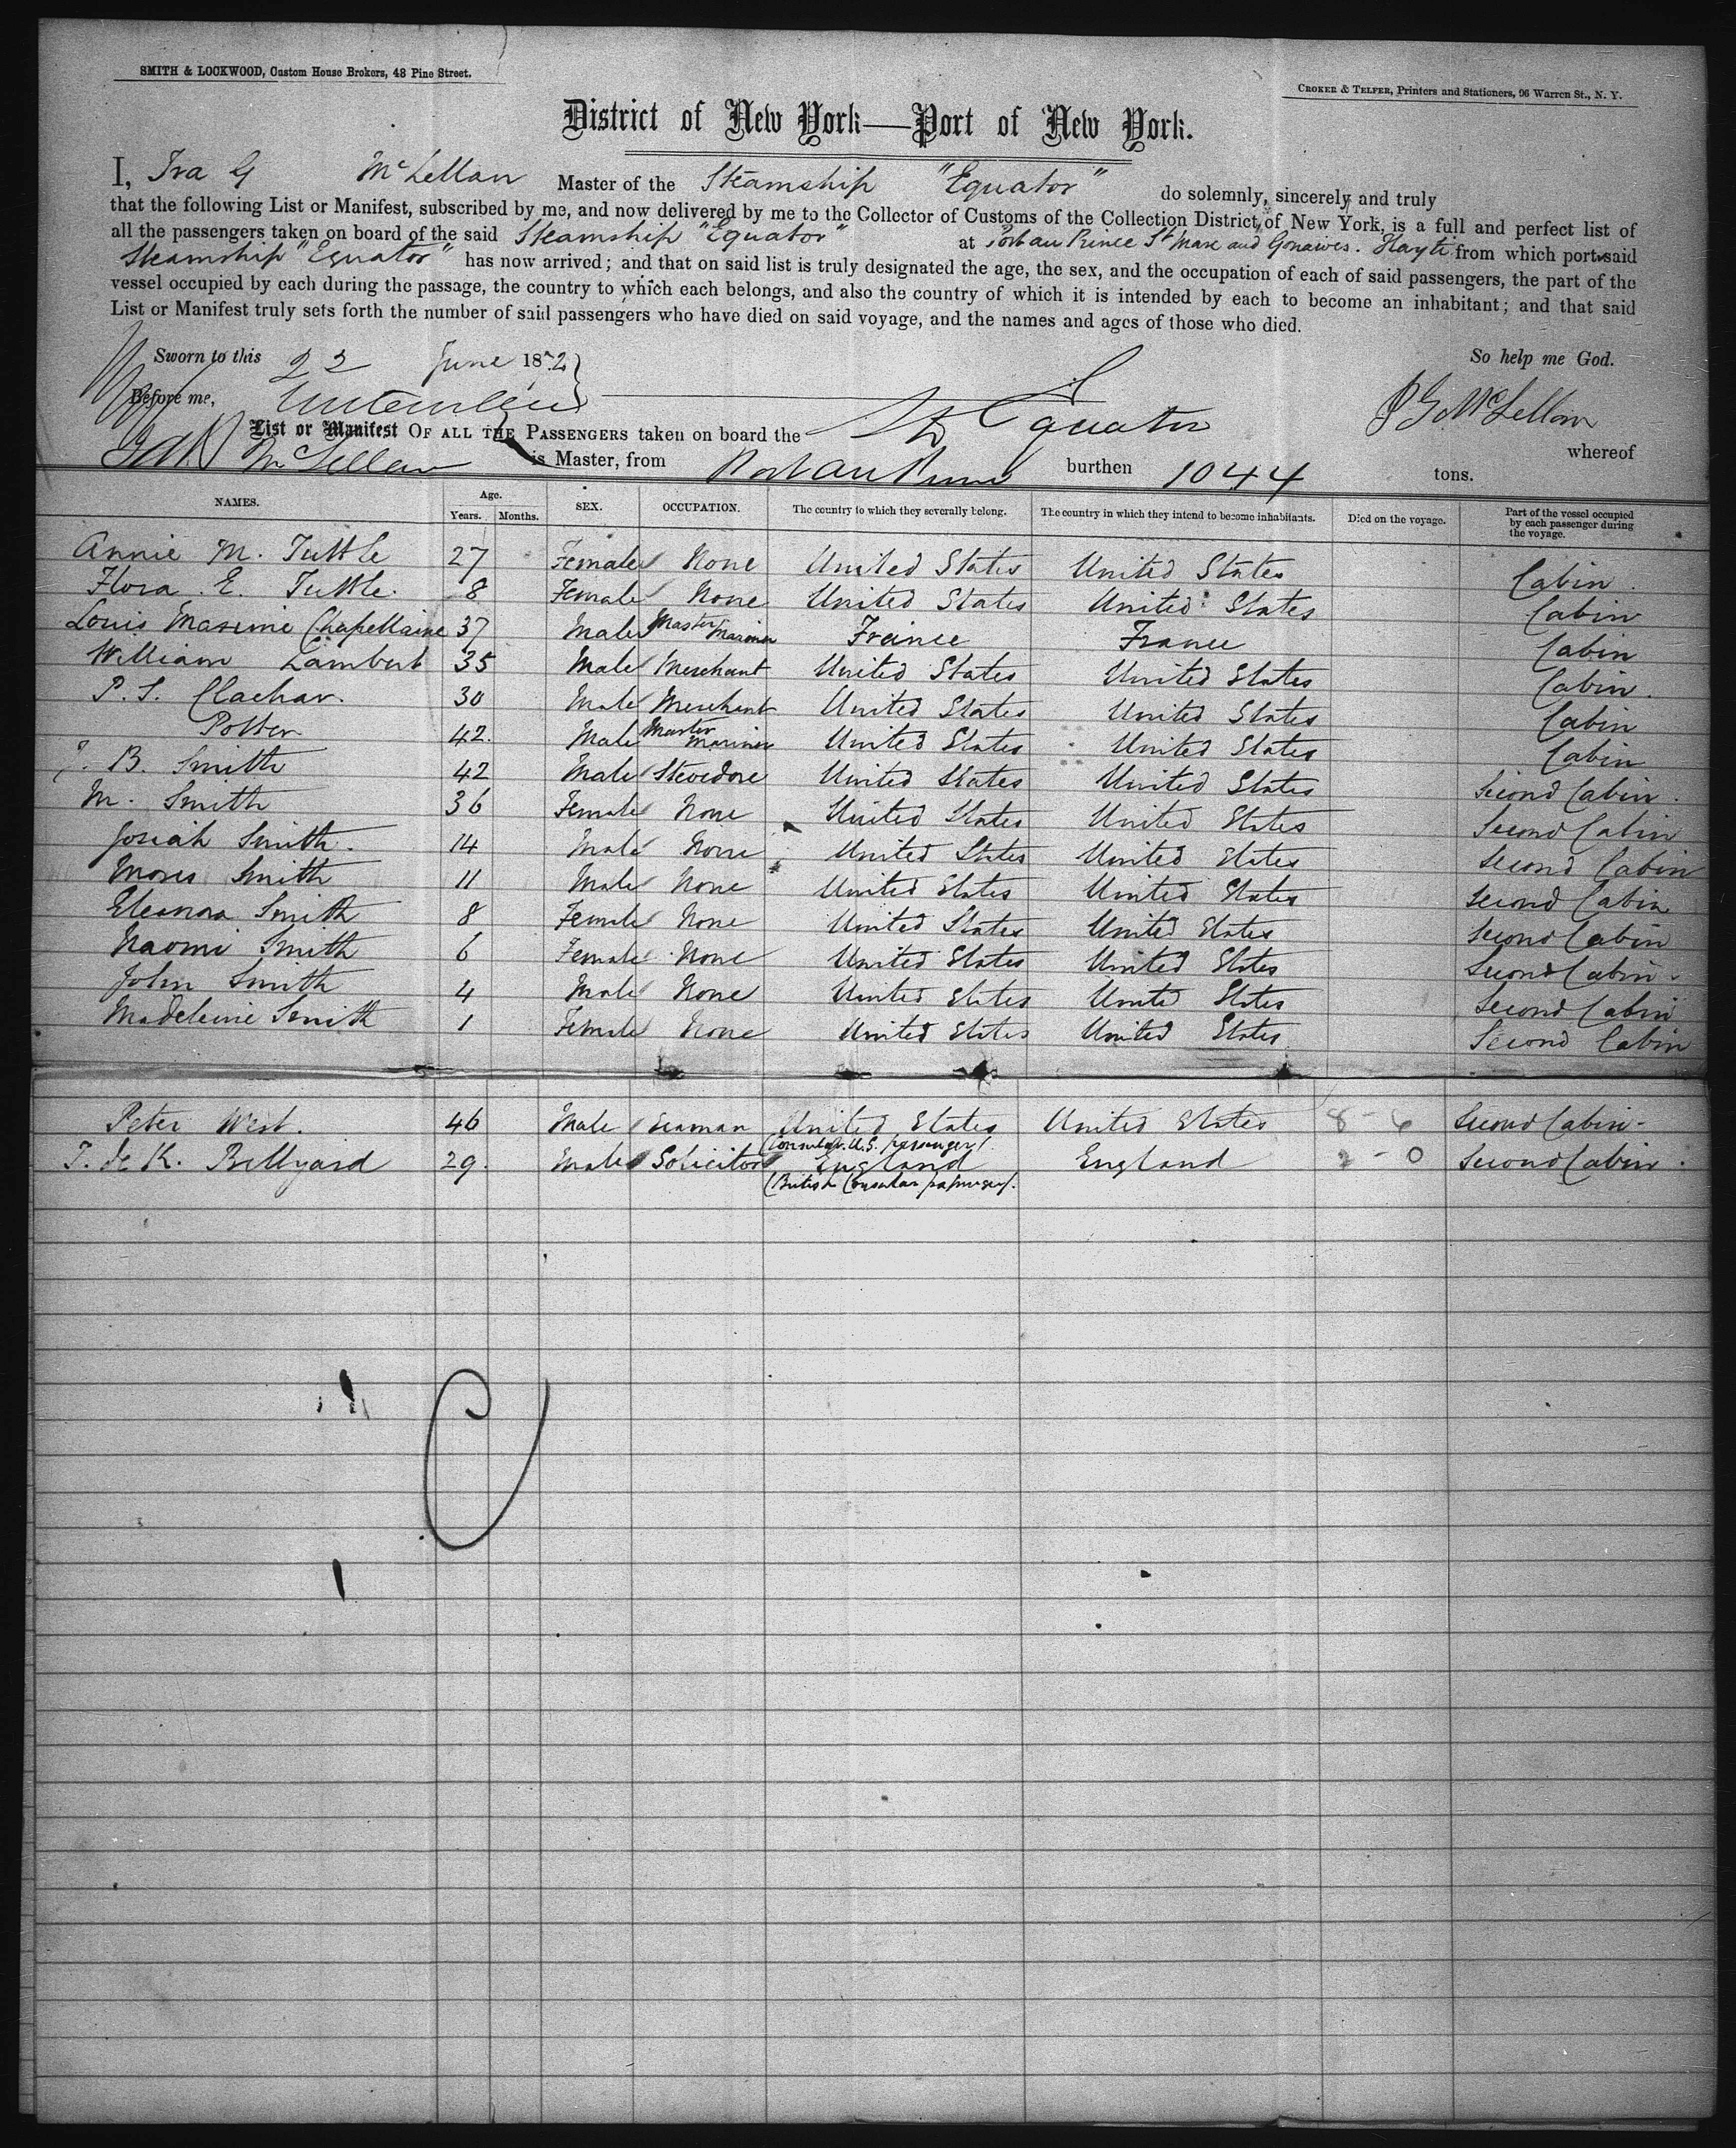 SMITH & LOCKWOOD, Custom House Brokers, 48 Pine Street.
CROKER & TELFER, Printers and Stationers, 96 Warren St., N. Y.
District of New York—Port of New York.
I, Ira G McLellan Master of the Steamship "Equator" do solemnly, sincerely and truly
that the following List or Manifest, subscribed by me, and now delivered by me to the Collector of Customs of the Collection District of New York, is a full and perfect list of
all the passengers taken on board of the said Steamship "Equator" at Port au Prince St Marc and Gonaives. Hayti from which port said
Steamship "Equator" has now arrived; and that on said list is truly designated the age, the sex, and the occupation of each of said passengers, the part of the
vessel occupied by each during the passage, the country to which each belongs, and also the country of which it is intended by each to become an inhabitant; and that said
List or Manifest truly sets forth the number of said passengers who have died on said voyage, and the names and ages of those who died.
Sworn to this 22 June 18 2 So help me God.
Before me, McLellan
List or Manifest OF ALL THE PASSENGERS taken on board the Equator whereof
McLellan is Master, from Port au Prince burthen 1044 tons.
NAMES. Age. Years. Months. SEX. OCCUPATION. The country to which they severally belong. The country in which they intend to become inhabitants. Died on the voyage. Part of the vessel occupied by each passenger during the voyage.
Annie M. Tuttle 27 Female None United States United States Cabin
Flora E. Tuttle. 8 Female None United States United States Cabin
Louis Maxime Chapellaine 37 Male Master Mariner France France Cabin
William Lambert 35 Male Merchant United States United States Cabin.
P. S. Clachar. 30 Male Merchant United States United States Cabin
Potter 42. Male Master Mariner United States United States Cabin
B. Smith 42 Male Stevedore United States United States Second Cabin.
M. Smith 36 Female None United States United States Second Cabin
Josiah Smith. 14 Male None United States United States Second Cabin
Moses Smith 11 Male None United States United States Second Cabin
Eleanora Smith 8 Female None United States United States Second Cabin
Naomi Smith 6 Female None United States United States Second Cabin.
John Smith 4 Male None United States United States Second Cabin
Madeleine Smith 1 Female None United States United States Second Cabin
Peter West. 46 Male Seaman United States United States 8 - 6 Second Cabin-
(Consular U.S. passenger).
T. de K. Bellyard 29. Male Solicitor England England 2 - 0 Second Cabin.
(British Consular passenger).